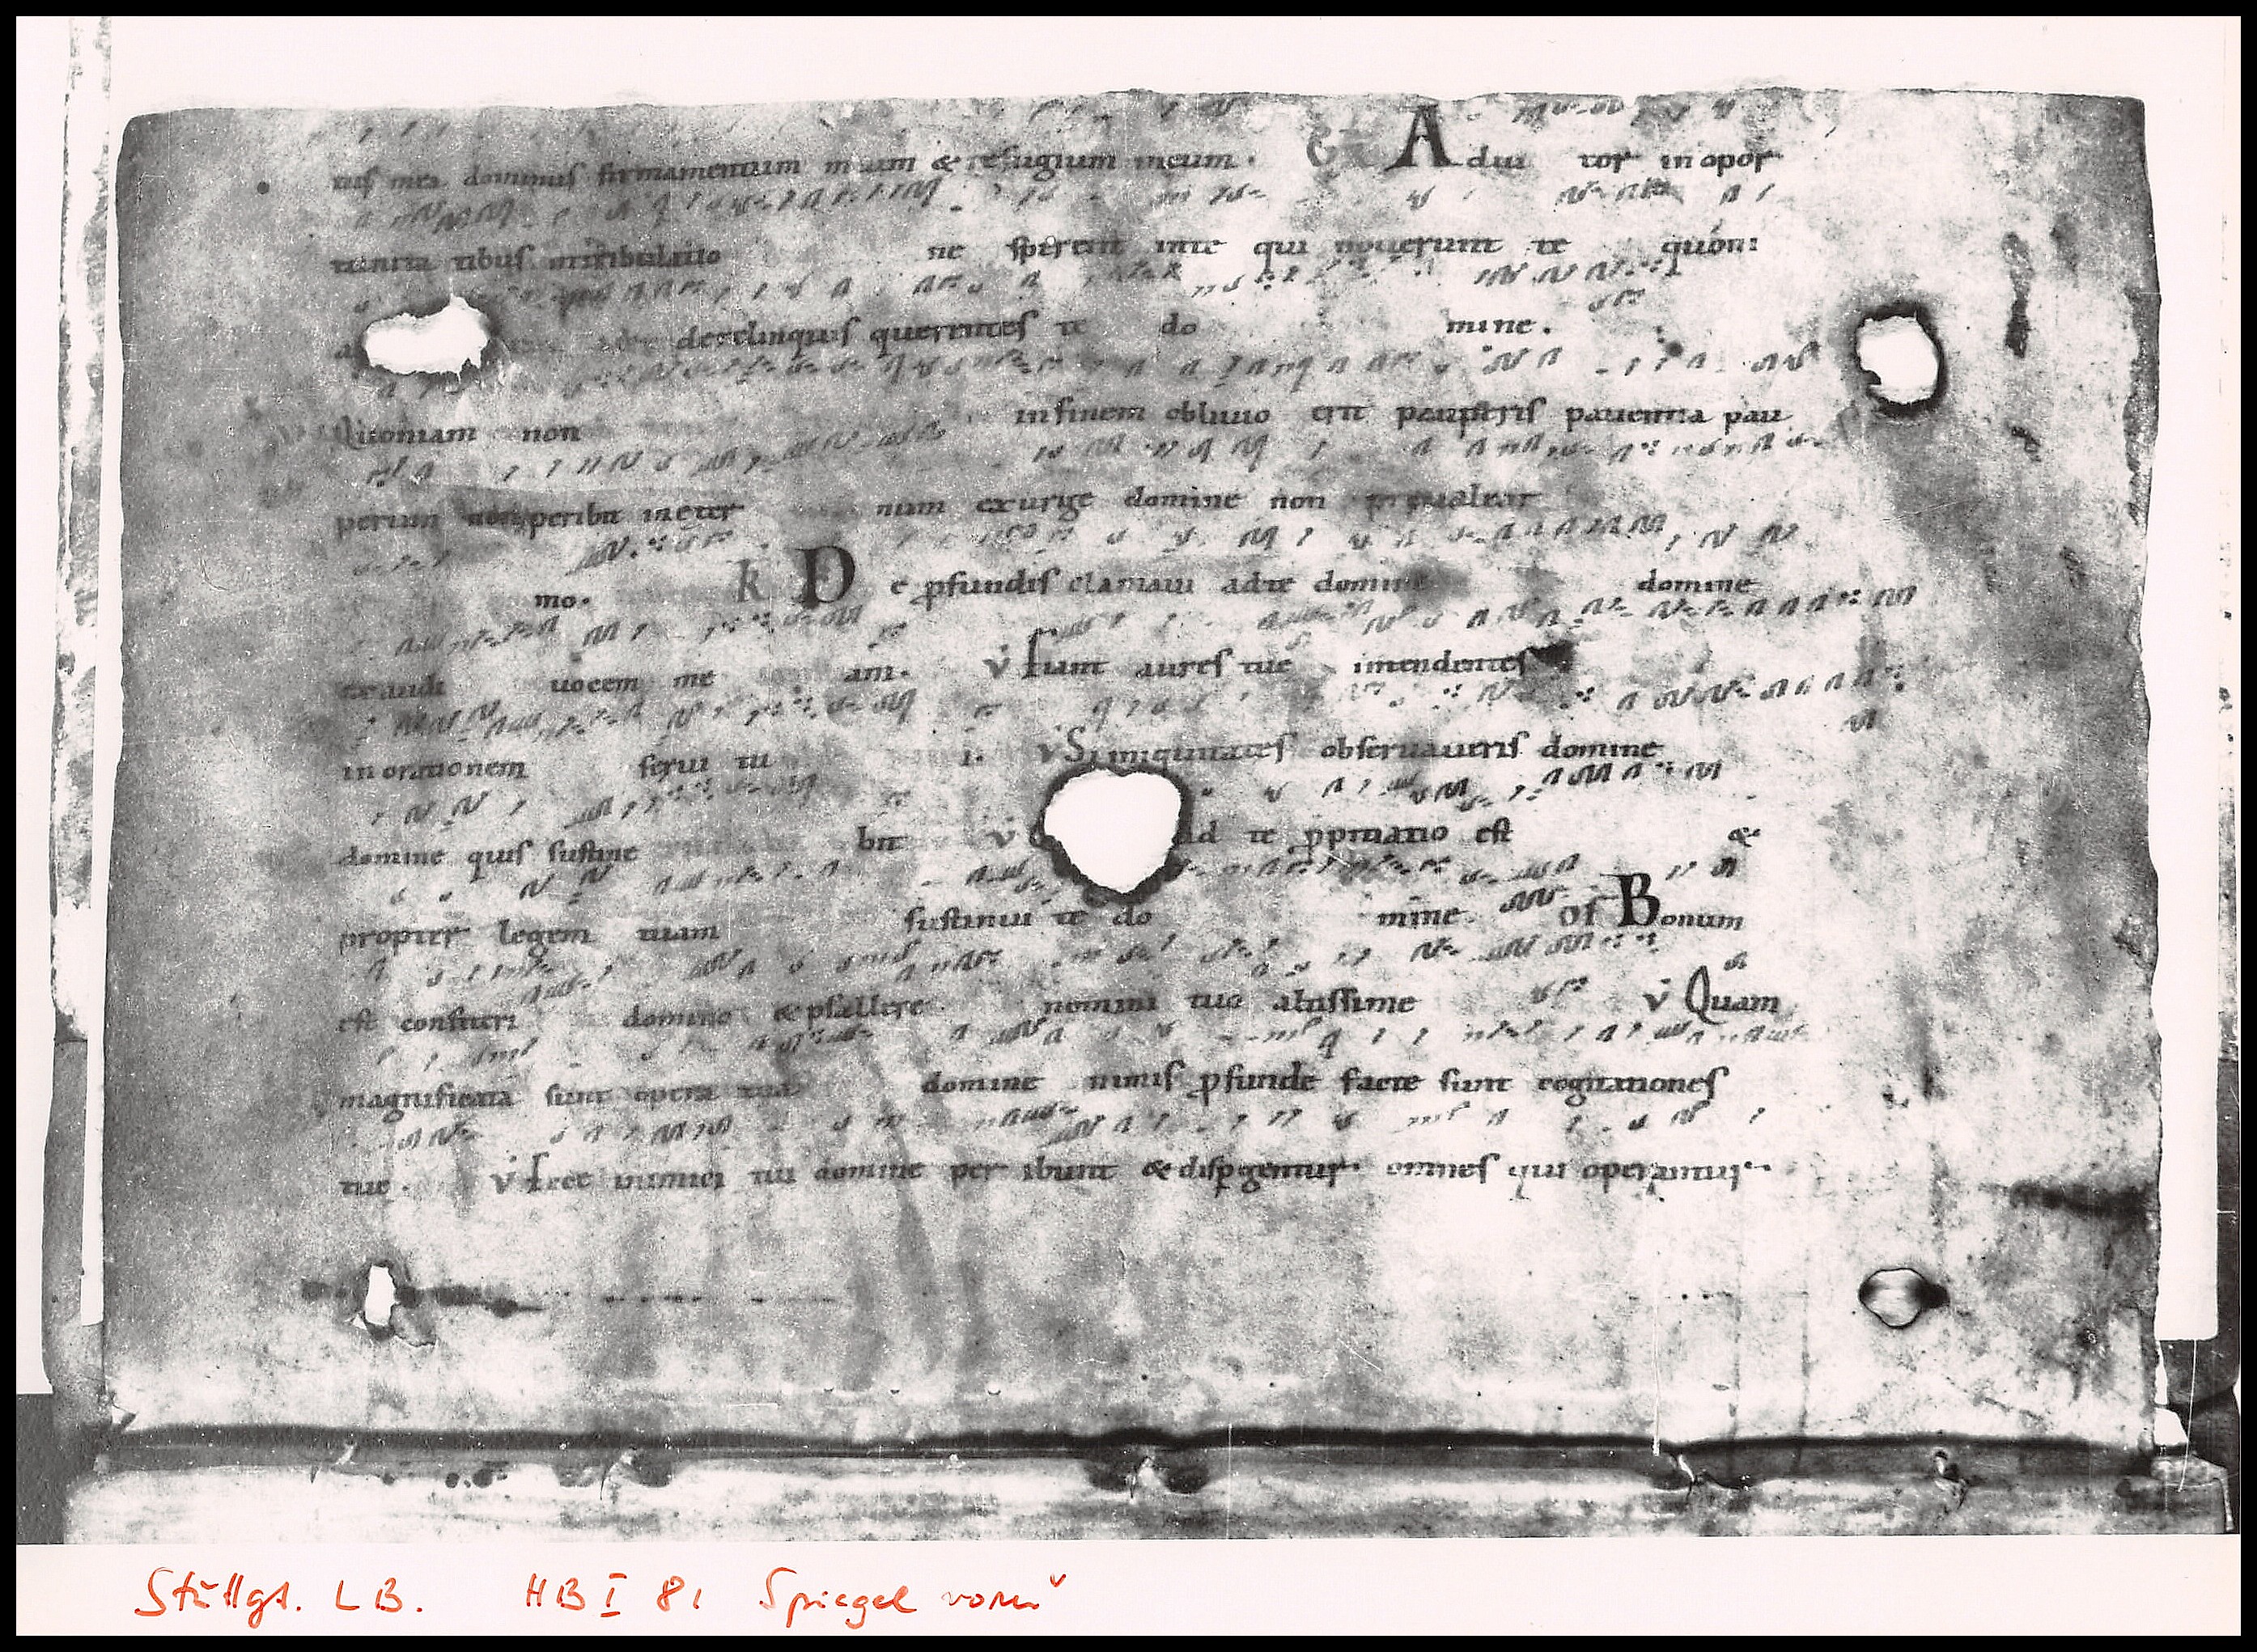 tus mea dominus firmamentum meum & refugium meum. GR Adiu tor in opor
tunita tibus in tribulatio ne sperent in te qui noverunt te quōni
derelinquis querentes te do mine.
Quoniam non in finem oblivio erit pauperis patientia pau
perum non peribit in eter num exurge domine non prevaleat
mo. R De ꝓfundis clamavi ad te domine domine
exaudi vocem me am. v̇ Fiant aures tue intendentes
in orationem servi tu i. v̇ Si iniquitates observaveris domine
domine quis sustine bit v̇ ad te ꝓpitiatio est &
propter legem tuam sustinui te do mine. Of Bonum
est confiteri domino & psallere nomini tuo altissime v̇ Quam
magnificata sunt opera tua domine nimis ꝓfunde facte sunt cogitationes
tue. v̇ Ecce inimici tui domine per ibunt & dispgentur. omnes qui operantur.
Stuttgt. LB. HB I 81 Spiegel vorn v